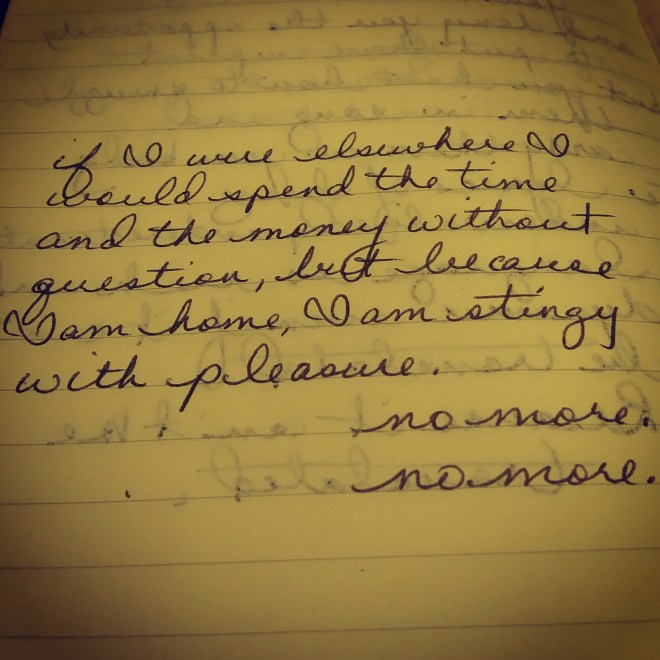 if I were elsewhere I
would spend the time
and the money without
question, but because
I am home, I am stingy
with pleasure.
no more.
no more.